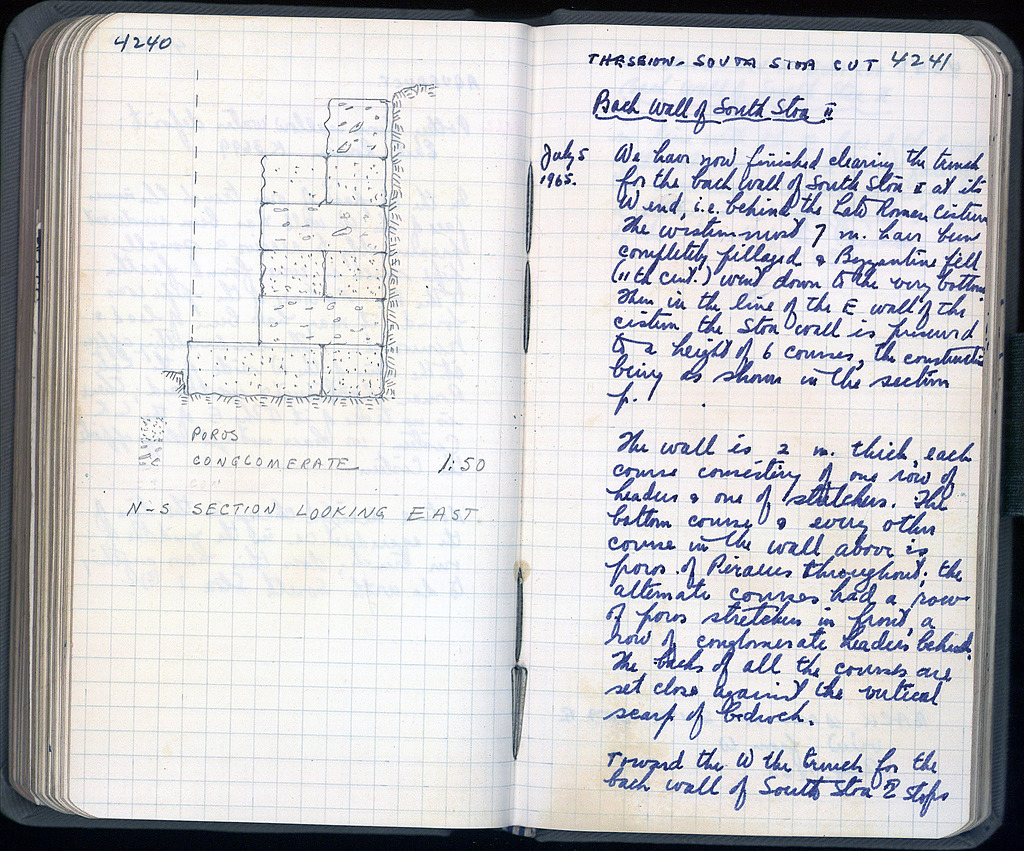 4240
POROS
CONGLOMERATE 1:50
N-S SECTION LOOKING EAST
THESEION - SOUTH STOA CUT 4241
Back wall of South Stoa II
July 5 We have now finished clearing the trench
1965. for the back wall of South Stoa II at its
W end, i.e. behind the Late Roman cistern
The westernmost 7 m. have been
completely pillaged & Byzantine fill
(11th cent.) went down to the very bottom.
Then in the line of the E wall of the
cistern the Stoa wall is preserved
to a height of 6 courses, the construction
being as shown in the section
p.
The wall is 2 m. thick, each
course consisting of one row of
headers & one of stretchers. The
bottom course & every other
course in the wall above is
poros of Piraeus throughout; the
alternate courses had a row
of poros stretchers in front, a
row of conglomerate headers behind.
The backs of all the courses are
set close against the vertical
scarp of bedrock.
Toward the W the trench for the
back wall of South Stoa II stops